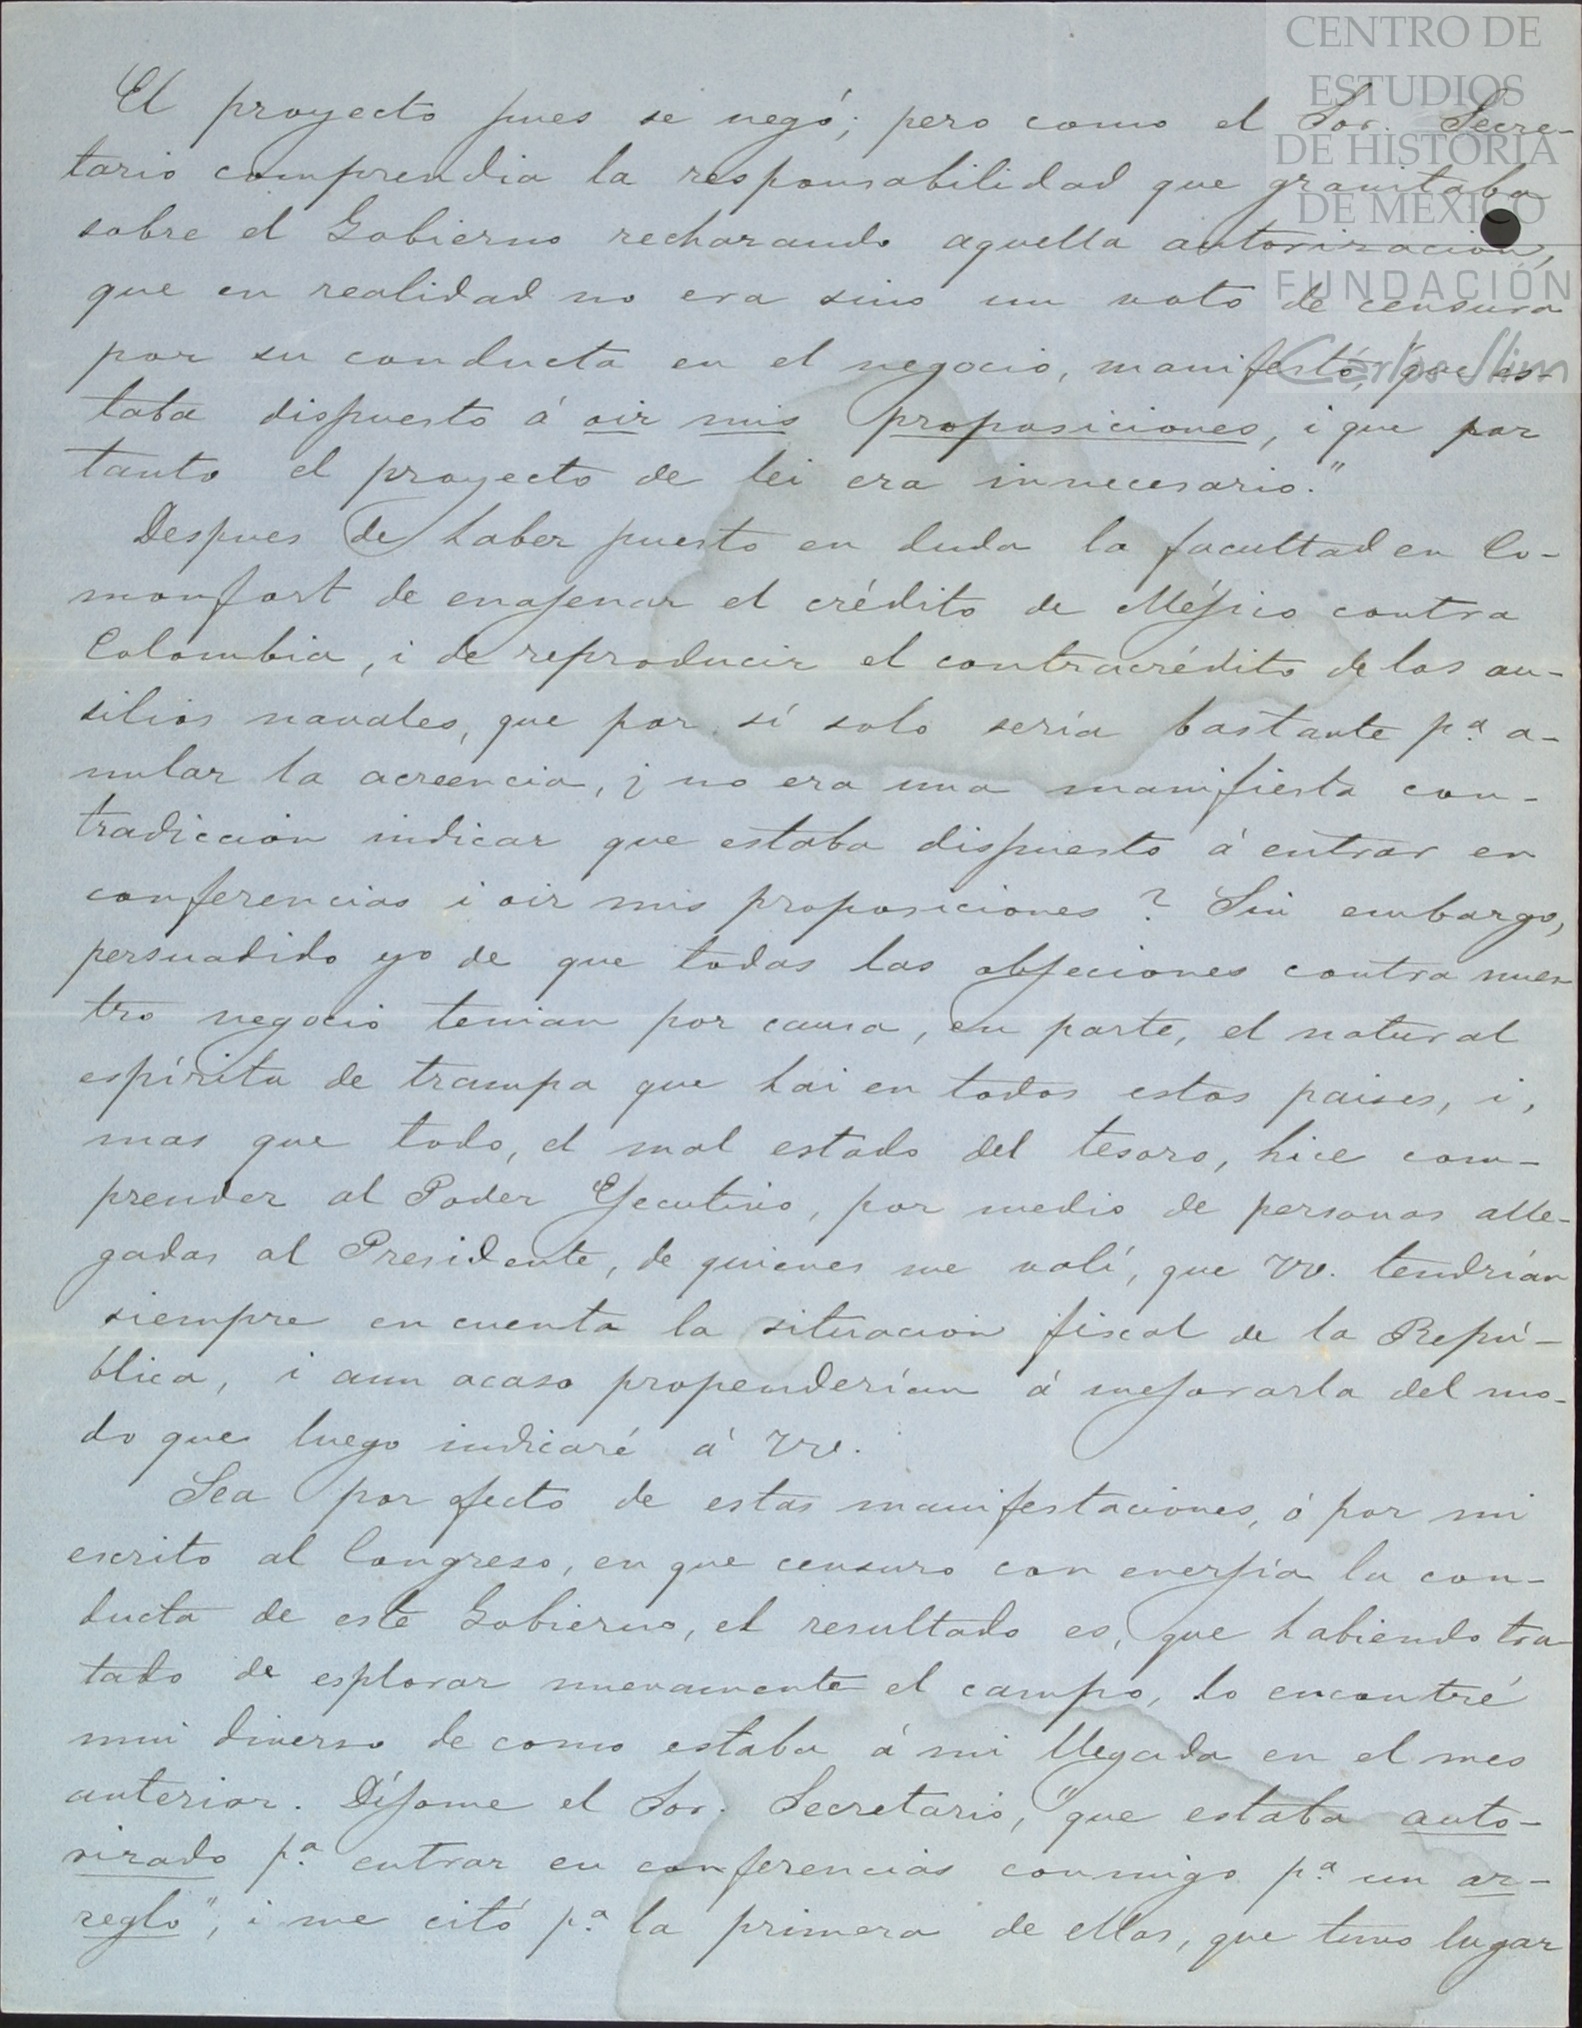 CENTRO DE
ESTUDIOS
DE HISTORIA
DE MÉXICO
FUNDACIÓN
Carlos Slim
El proyecto pues se negó; pero como el Sor. Secre-
tario comprendia la responsabilidad que gravitaba
sobre el Gobierno rechazando aquella autorizacion,
que en realidad no era sino un voto de censura
por su conducta en el negocio, manifestó, "que es-
taba dispuesto á oir mis proposiciones, i que por
tanto el proyecto de lei era innecesario."
Despues de haber puesto en duda la facultad en Co-
monfort de enajenar el crédito de Méjico contra
Colombia, i de reproducir el contracrédito de los au-
silios navales, que por sí solo sería bastante pª a-
nular la acreencia, ¿ no era una manifiesta con-
tradiccion indicar que estaba dispuesto á entrar en
conferencias i oir mis proposiciones? Sin embargo,
persuadido yo de que todas las objeciones contra nues-
tro negocio tenian por causa, en parte, el natural
espíritu de trampa que hai en todos estos paises, i,
mas que todo, el mal estado del tesoro, hice com-
prender al Poder Ejecutivo, por medio de personas alle-
gadas al Presidente, de quienes me valí, que VV. tendrían
siempre en cuenta la situacion fiscal de la Repú-
blica, i aun acaso propenderían á mejorarla del mo-
do que luego indicaré á VV.
Sea por efecto de estas manifestaciones, ó por mi
escrito al Congreso, en que censuro con enerjía la con-
ducta de este Gobierno, el resultado es, que habiendo tra-
tado de esplorar nuevamente el campo, lo encontré
mui diverso de como estaba á mi llegada en el mes
anterior. Díjome el Sor. Secretario, "que estaba auto-
rizado pª entrar en conferencias conmigo pª un ar-
reglo", i me citó pª la primera de ellas, que tuvo lugar